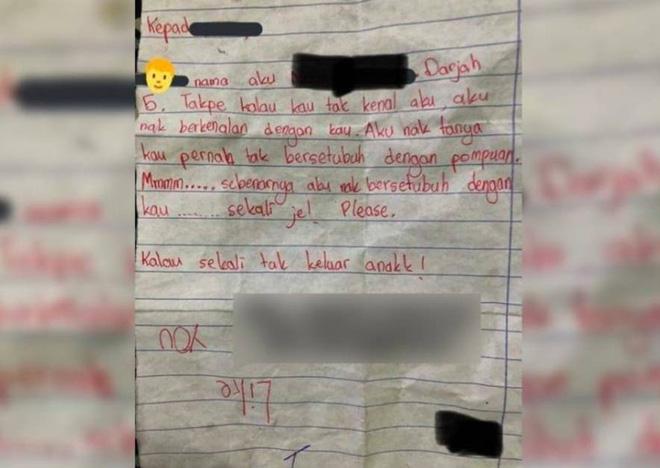 Kepad
nama aku Darjah
5. Takpe kalau kau tak kenal aku, aku
nak berkenalan dengan kau. Aku nak tanya
kau pernah tak bersetubuh dengan pompuan.
Mmmm..... sebenarnya aku nak bersetubuh dengan
kau ....... sekali je! Please.
Kalau sekali tak keluar anakk!